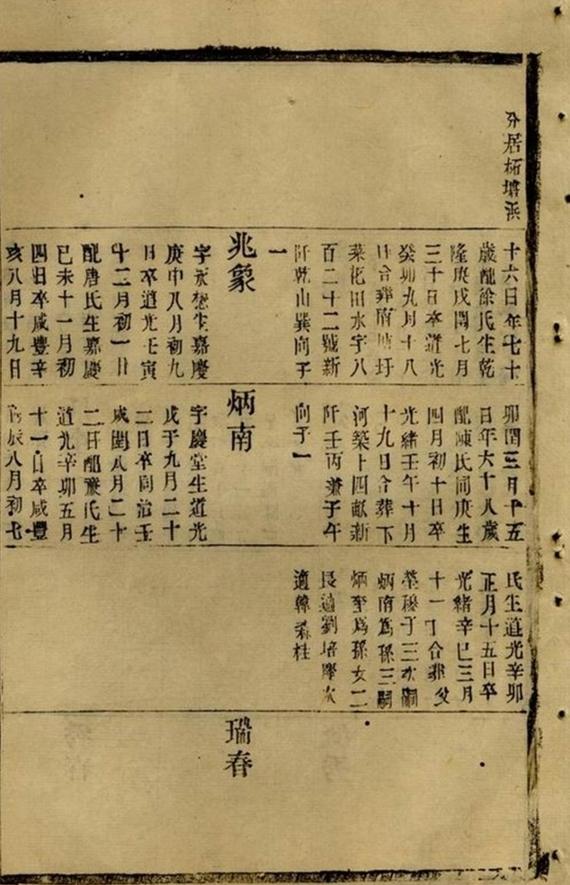 分居柘塘張
十六日年七十
歲配徐氏生乾
隆庚戌閏七月
三十日卒道光
癸卯九月十八
日合葬南城圩
菜花田水字八
百二十二號新
阡乾山巽向子
一
兆象
字永懋生嘉慶
庚申八月初九
日卒道光壬寅
十二月初一日
配唐氏生嘉慶
己未十一月初
四日卒咸豐辛
亥八月十九日
卯閏三月十五
日年六十八歲
配陳氏同庚生
四月初十日卒
光緒壬午十月
十九日合葬下
河築十四畝新
阡壬丙兼子午
向子一
炳南
字慶堂生道光
戊子九月二十
二日卒同治壬
戌閏八月二十
二日配嚴氏生
道光辛卯五月
十一日卒咸豐
丙辰八月初七
氏生道光辛卯
正月十五日卒
光緒辛巳三月
十一日合葬父
塋穆子三次嗣
炳南為孫三嗣
炳奎為孫女二
長適劉培慶次
適韓柱
瑞春